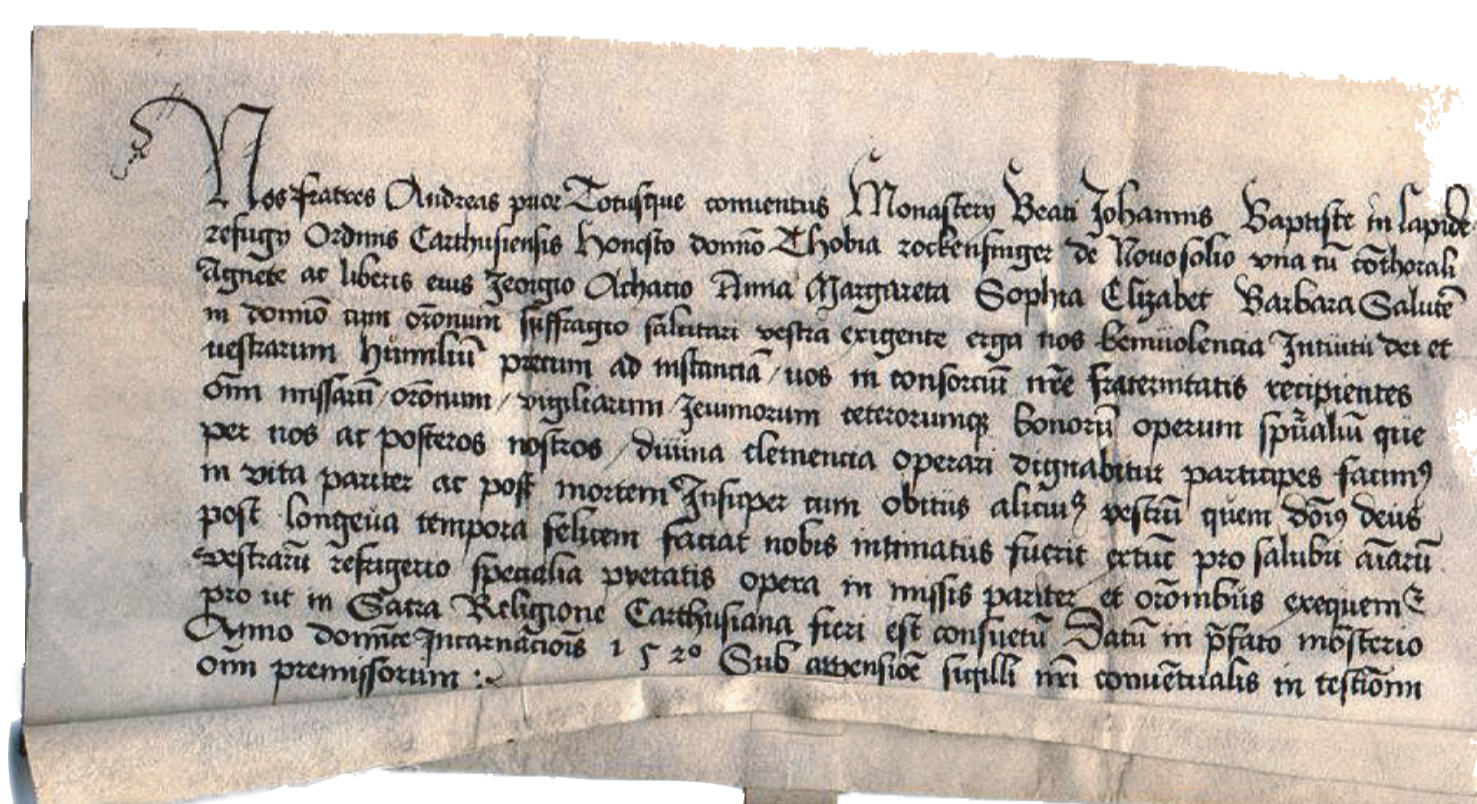 Nos fratres Andreas prior Totusque conuentus Monastery Beati Johannis Baptiste in lapide
refugy Ordinis Carthusiensis Honesto domno Thobia rockenfinger de Nouosolio vna cū cothorali
Agnete ac liberis eius Jeorgio Achacio Anna Margareta Sophia Elizabet Barbara Salutē
in domno cum orōnum suffragio salutari vestra exigente erga nos beniuolencia Intuitu dei et
uestrarum humiliū precum ad instanciā / uos in consorciū nrē fraternitatis recipientes
oīm missarū / orōnum / vigiliarum / Jeiuniorum ceterorumqꝫ bonorū operum spūaliū que
per nos ac posteros nostros / diuina clemencia operari dignabitur participes facimꝰ
in vita pariter ac post mortem Insuper cum obitus alicuiꝰ vestrū quem dōīꝰ deus
post longeua tempora felicem faciat nobis intimatus fuerit extūc pro salubri aīarū
vestrarū refrigerio specialia pyetatis opera in missis pariter et orōnibus exequem̄
pro ut in Sacra Religione Carthusiana fieri est consuetū Datū in p̄fato mōsterio
Anno domīce Incarnacioīs 1520 Sub appensioē sigilli nrī conuētualis in testiōīm
oīm premissorum :~